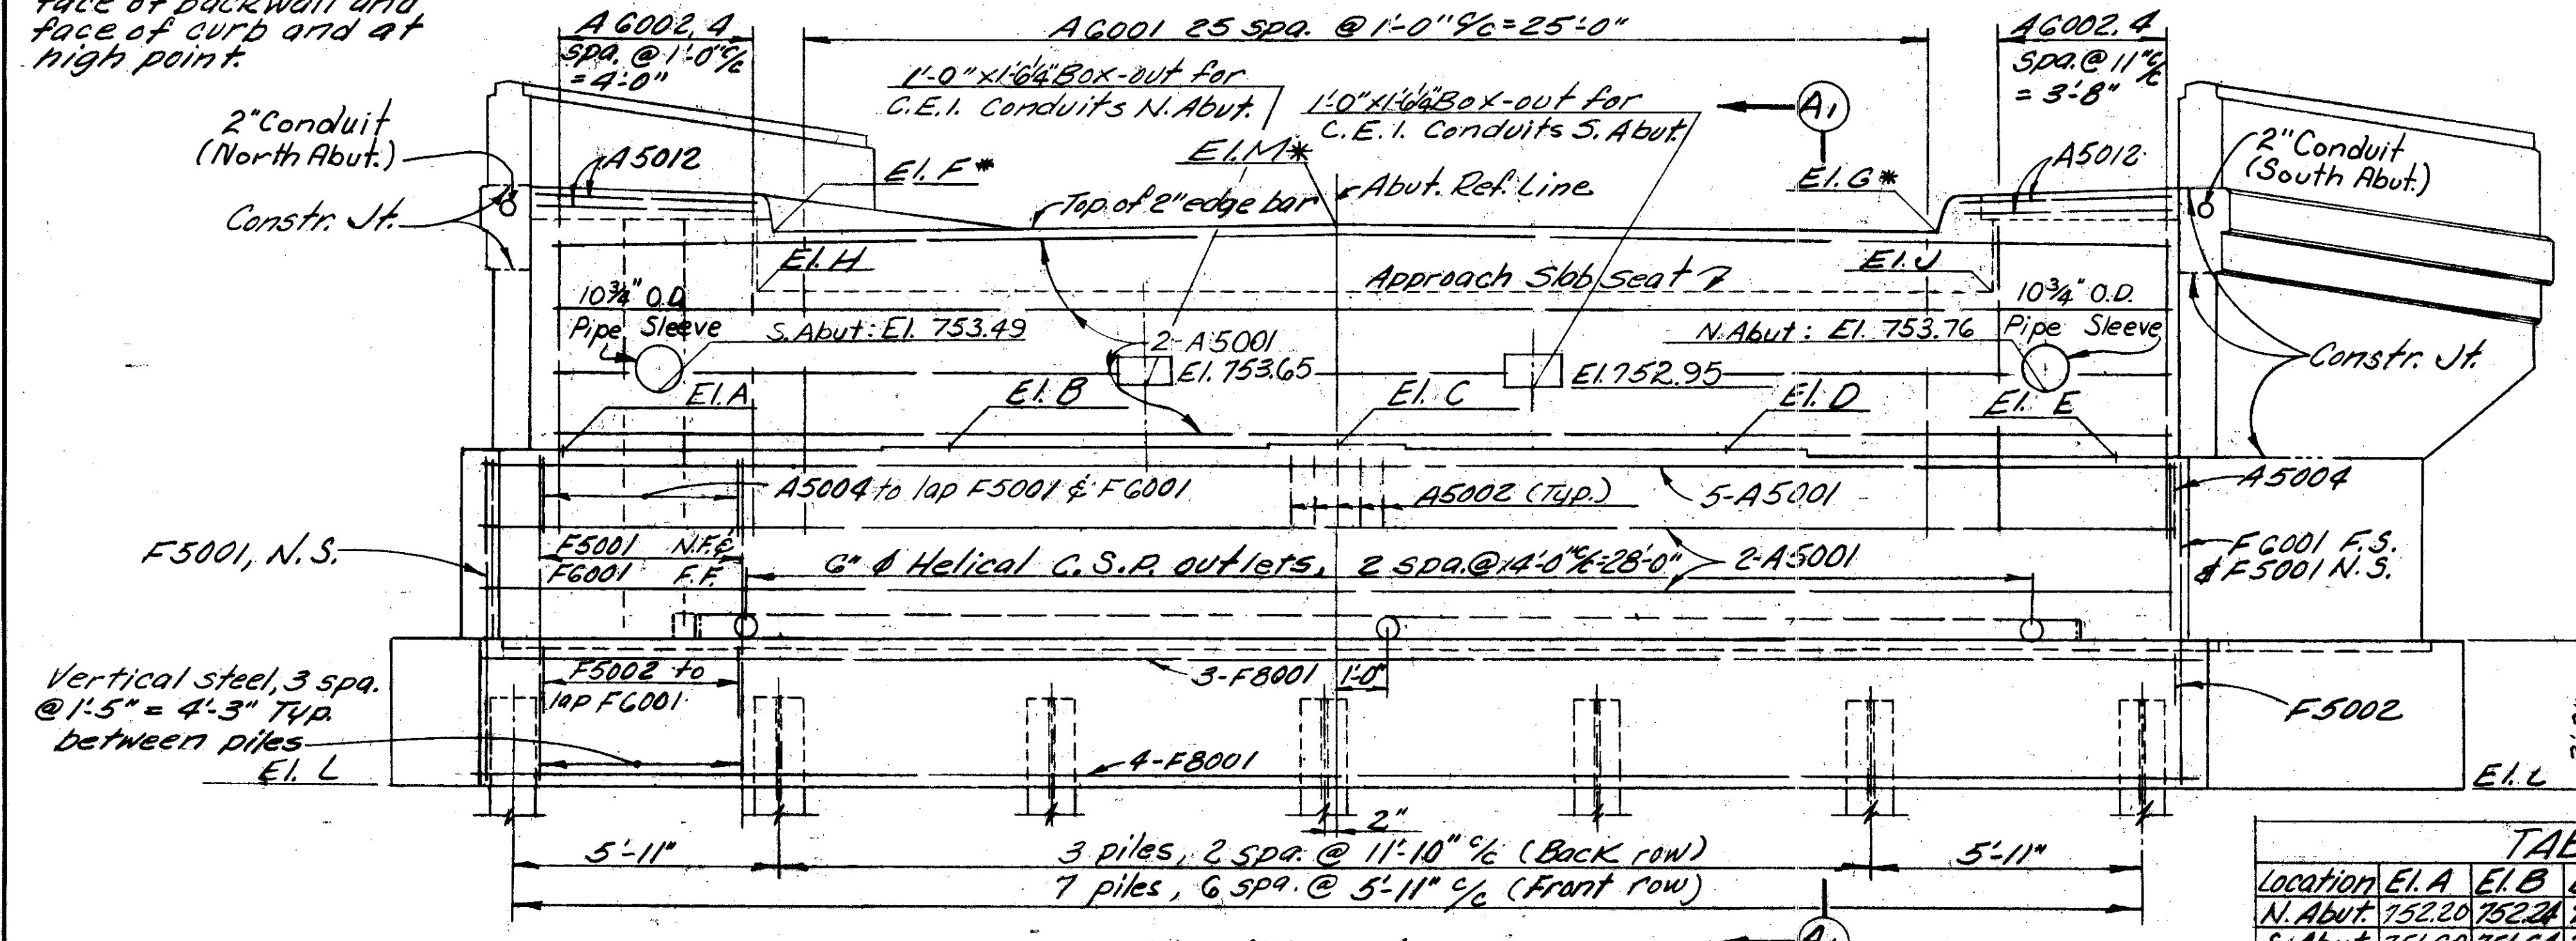 face of backwall and
face of curb and at
high point.
A6002, 4
spa. @ 1'-0" c/c
= 4'-0"
A6001 25 spa. @ 1'-0" c/c = 25'-0"
A6002, 4
spa. @ 11" c/c
= 3'-8"
1'-0" x 1'-6¼" Box-out for
C.E.I. Conduits N. Abut.
1'-0" x 1'-6¼" Box-out for
C.E.I. Conduits S. Abut.
A1
2" Conduit
(North Abut.)
A5012
El. F*
El. M*
Abut. Ref. Line
El. G*
A5012
2" Conduit
(South Abut.)
Constr. Jt.
Top of 2" edge bar
El. H
Approach Slab Seat
El. J
10¾" O.D.
Pipe Sleeve
S. Abut: El. 753.49
2-A5001
El. 753.65
El. 752.95
N. Abut: El. 753.76
10¾" O.D.
Pipe Sleeve
Constr. Jt.
El. A
El. B
El. C
El. D
El. E
A5004 to lap F5001 & F6001
A5002 (Typ.)
5-A5001
A5004
F5001, N.S.
F5001 N.F. &
F6001 F.F.
6" φ Helical C.S.P. outlets, 2 spa. @ 14'-0" c/c = 28'-0"
2-A5001
F6001 F.S.
& F5001 N.S.
Vertical steel, 3 spa.
@ 1'-5" = 4'-3" Typ.
between piles
F5002 to
lap F6001
3-F8001
1'-0"
F5002
El. L
4-F8001
El. L
2"
5'-11"
3 piles, 2 spa. @ 11'-10" c/c (Back row)
5'-11"
7 piles, 6 spa. @ 5'-11" c/c (Front row)
A1
Location El. A El. B
N. Abut. 752.20 752.24